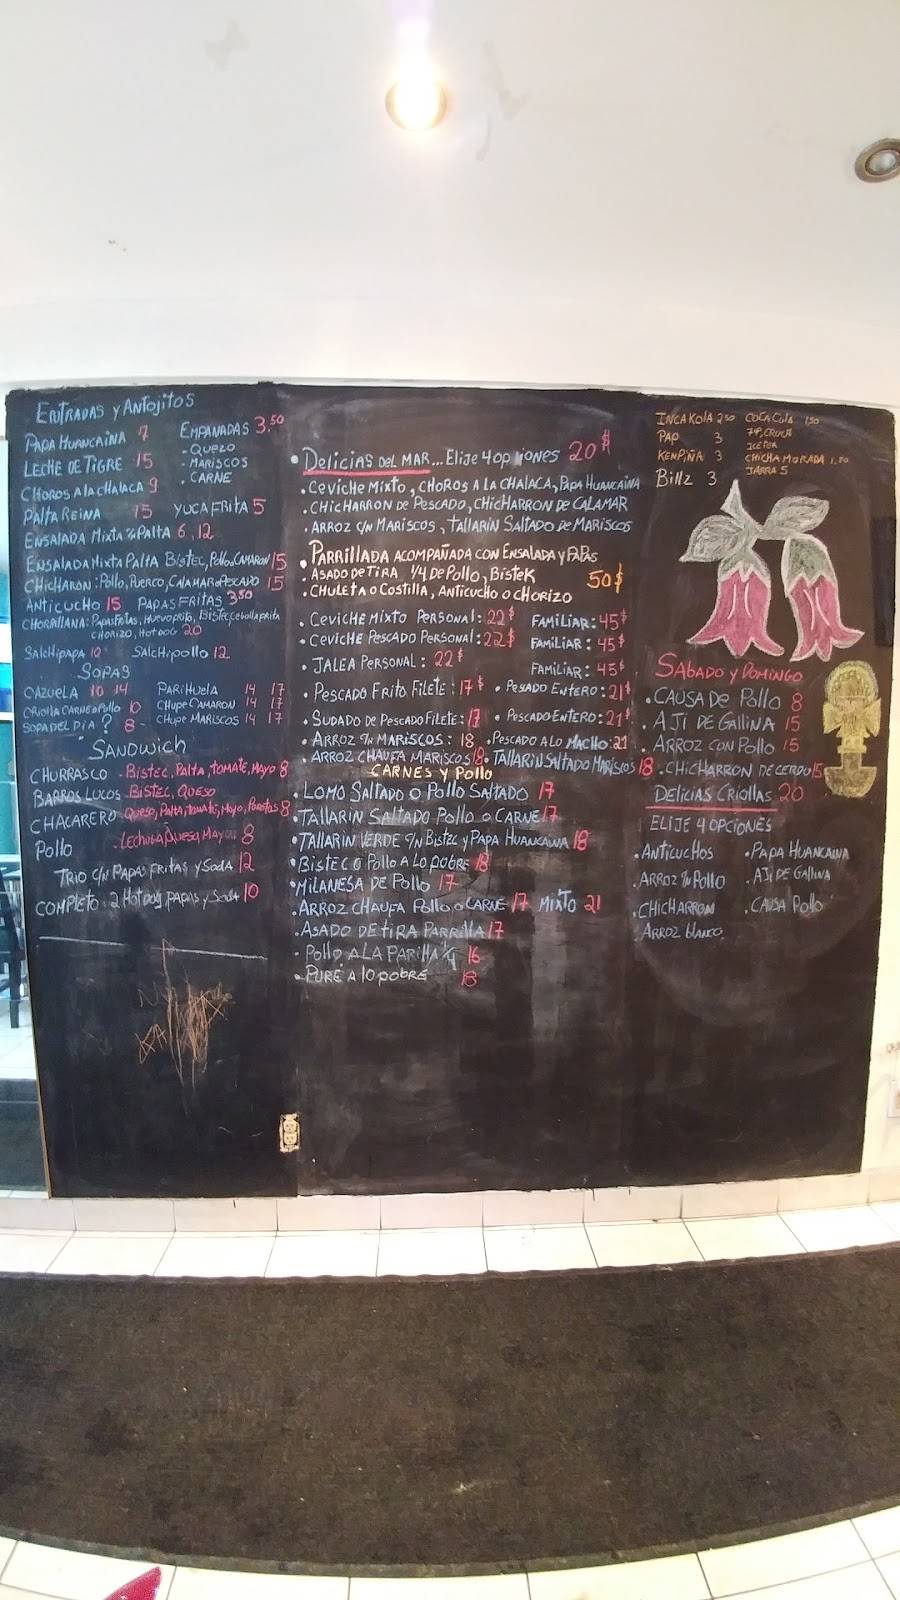 Entradas y Antojitos
Papa Huancaina 7
Leche de Tigre 15
Choros a la chalaca 9
Palta Reina 15
Ensalada Mixta Palta 6, 12
Empanadas 3,50
- Quezo
- Mariscos
- Carne
Yuca Frita 5
Ensalada Mixta Palta Bistec, Pollo, Camaron 15
Chicharon: Pollo, Puerco, Calamar o Pescado 15
Anticucho 15 Papas Fritas 3,50
Chorrillana: Papas Fritas, Huevo Frito, Bistec, Cebolla frita
Chorizo, Hotdog 20
Salchipapa Salchipollo 12
Sopas
Cazuela 10 14
Criolla Carne o Pollo 10
Sopa del Dia ? 8
Parihuela 14 17
Chupe Camaron 14 17
Chupe Mariscos 14 17
Sandwich
Churrasco - Bistec, Palta, Tomate, Mayo 8
Barros Lucos - Bistec, Queso
Chacarero - Queso, Palta, Tomate, Mayo, Porotos 8
Pollo - Lechuga, Queso, Mayo 8
Trio c/n Papas Fritas y Soda 12
Completo: 2 Hotdog, papas, y Soda 10
• Delicias del Mar... Elije 4 opciones 20$
• Ceviche Mixto, Choros a la Chalaca, Papa Huancaina
• Chicharron de Pescado, Chicharron de Calamar
• Arroz c/n Mariscos, Tallarin Saltado de Mariscos
• Parrillada acompañada con Ensalada y Papas
• Asado de Tira 1/4 de Pollo, Bistek 50$
• Chuleta o Costilla, Anticucho o Chorizo
• Ceviche Mixto Personal: 22$ Familiar: 45$
• Ceviche Pescado Personal: 22$ Familiar: 45$
• Jalea Personal: 22$ Familiar: 45$
• Pescado Frito Filete: 17$ • Pesado Entero: 21$
• Sudado de Pescado Filete: 17 • Pescado Entero: 21$
• Arroz c/n Mariscos: 18 • Pescado a lo Macho: 21
• Arroz Chaufa Mariscos 18 • Tallarin Saltado Mariscos 18
Carnes y Pollo
• Lomo Saltado o Pollo Saltado 17
• Tallarin Saltado Pollo o Carne 17
• Tallarin Verde c/n Bistec y Papa Huancaina 18
• Bistec o Pollo a lo Pobre 18
• Milanesa de Pollo 17
• Arroz Chaufa Pollo o Carne 17 Mixto 21
• Asado de Tira Parrilla 17
- Pollo a la Parilla 1/4 16
- Puré a lo pobre 18
Inca Kola 2,50 Coca Cola 1,50
Pap 3 7up, Cruch
Ken Piña 3 Chicha Morada
Billz 3 Jarra 5
Sabado y Domingo
• Causa de Pollo 8
• Aji de Gallina 15
• Arroz con Pollo 15
• Chicharron de Cerdo 15
Delicias Criollas 20
Elije 4 opciones
• Anticuchos • Papa Huancaina
• Arroz c/n Pollo • Aji de Gallina
• Chicharron • Causa Pollo
Arroz blanco